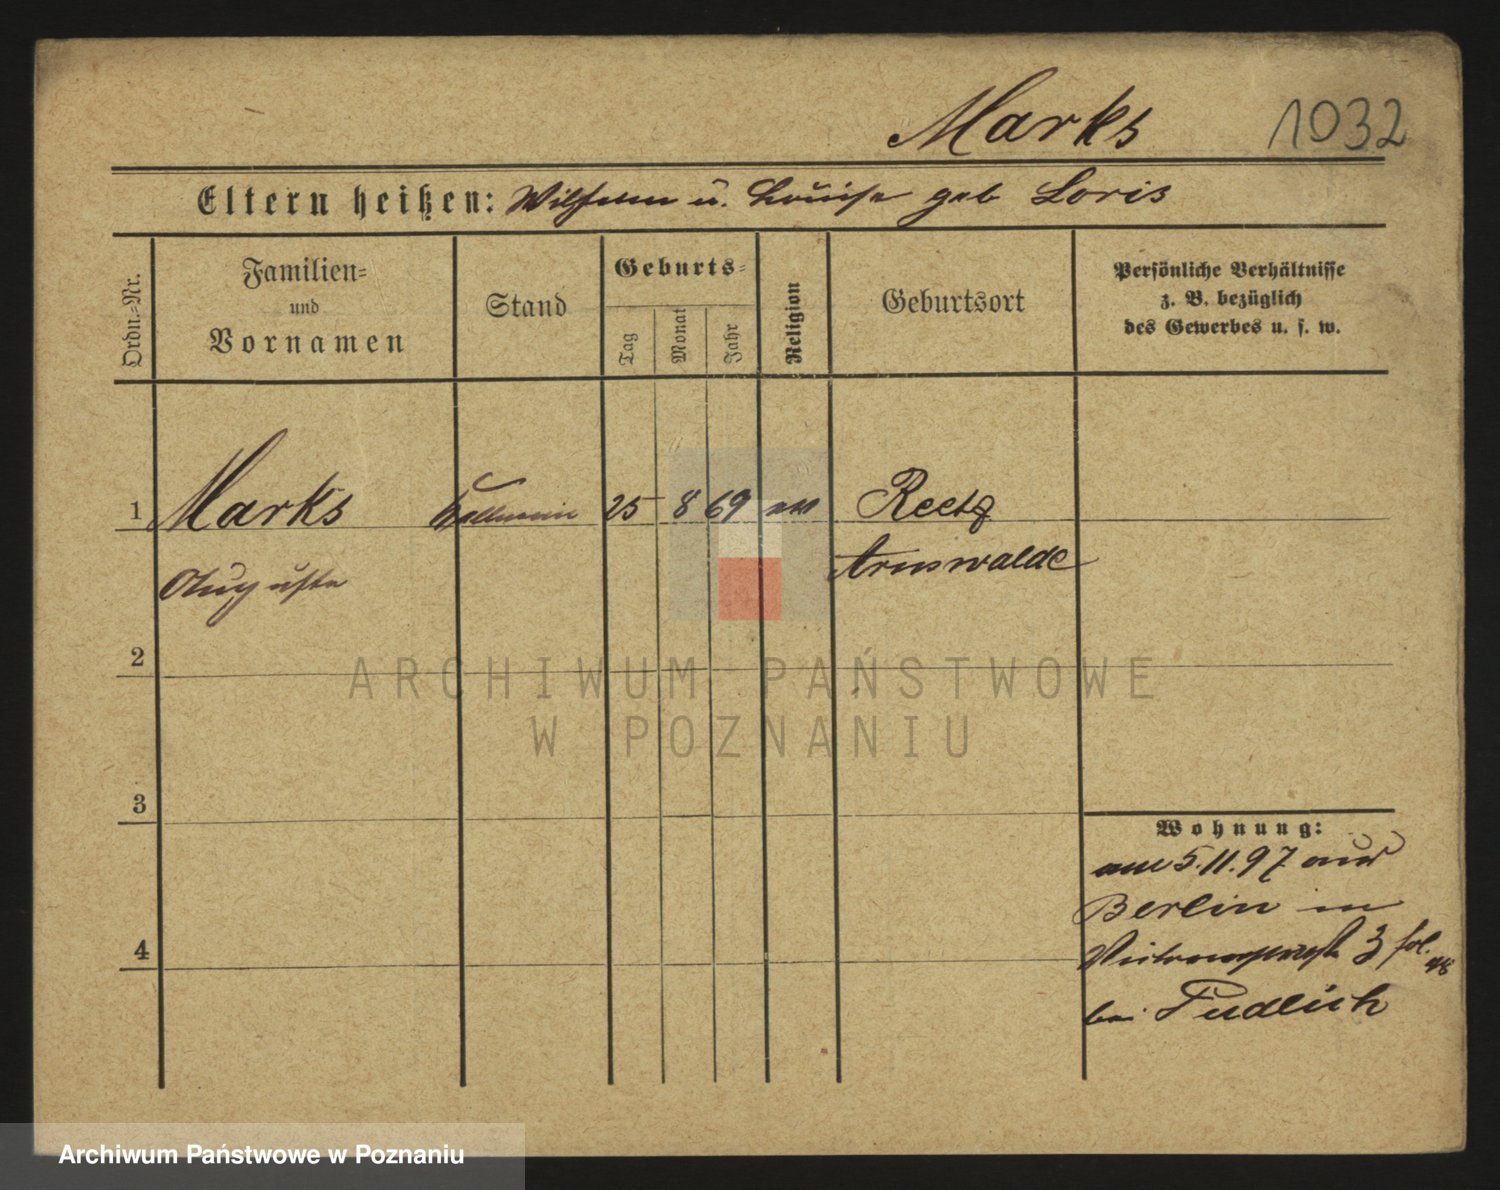 Marks 1032
Eltern heißen: Wilhelm u. Louise geb Loris
Ordn.-Nr.
Familien-
und
Vornamen
Stand
Geburts-
Tag
Monat
Jahr
Religion
Geburtsort
Persönliche Verhältnisse
z. B. bezüglich
des Gewerbes u. s. w.
1 Marks 25 8 69 ev Reetz
Auguste Arnswalde
2
3
4
Wohnung:
am 5.11.97 aus
Berlin in
3 fol.
bei Fudlich
ARCHIWUM PAŃSTWOWE
W POZNANIU
Archiwum Państwowe w Poznaniu